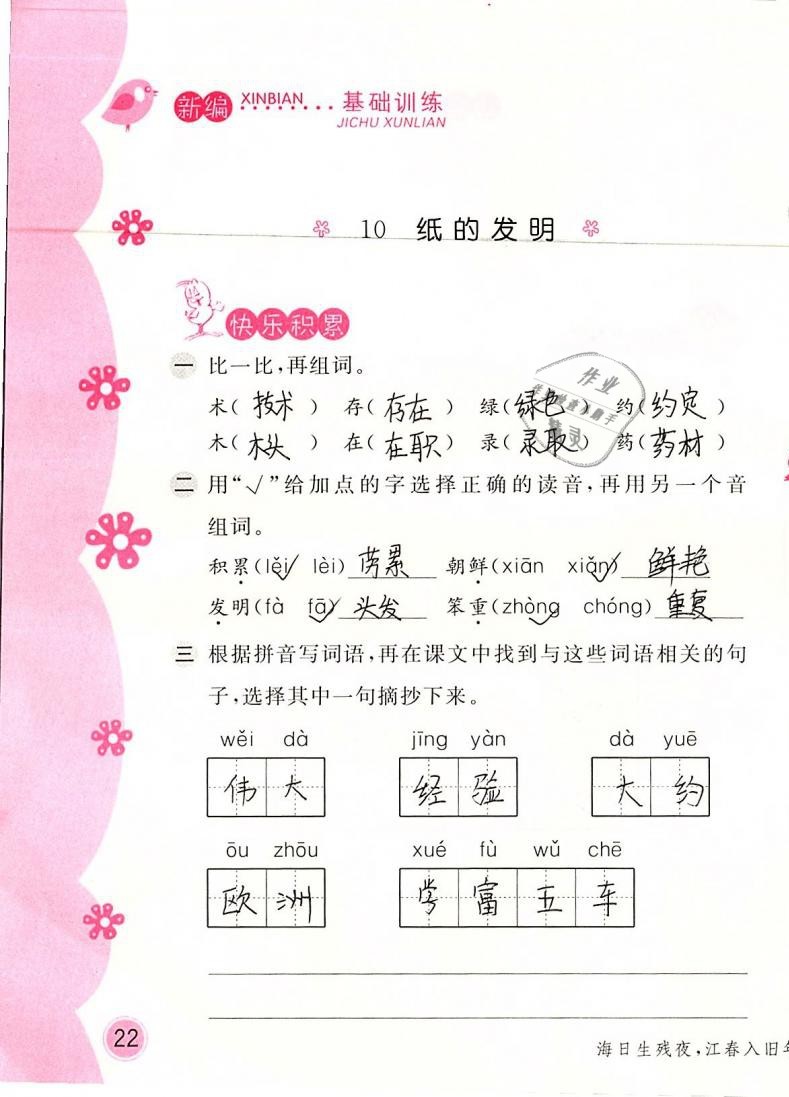 新编 XINBIAN 基础训练
JICHU XUNLIAN
10 纸的发明
快乐积累
一 比一比,再组词。
术( 技术 ) 存( 存在 ) 绿( 绿色 ) 约( 约定 )
木( 木头 ) 在( 在职 ) 录( 录取 ) 药( 药材 )
二 用“√”给加点的字选择正确的读音,再用另一个音
组词。
积累(lěi√ lèi) 劳累 朝鲜(xiān xiǎn√) 鲜艳
发明(fà fā√) 头发 笨重(zhòng√ chóng) 重复
三 根据拼音写词语,再在课文中找到与这些词语相关的句
子,选择其中一句摘抄下来。
wěi dà jīng yàn dà yuē
伟大 经验 大约
ōu zhōu xué fù wǔ chē
欧洲 学富五车
22
海日生残夜,江春入旧年